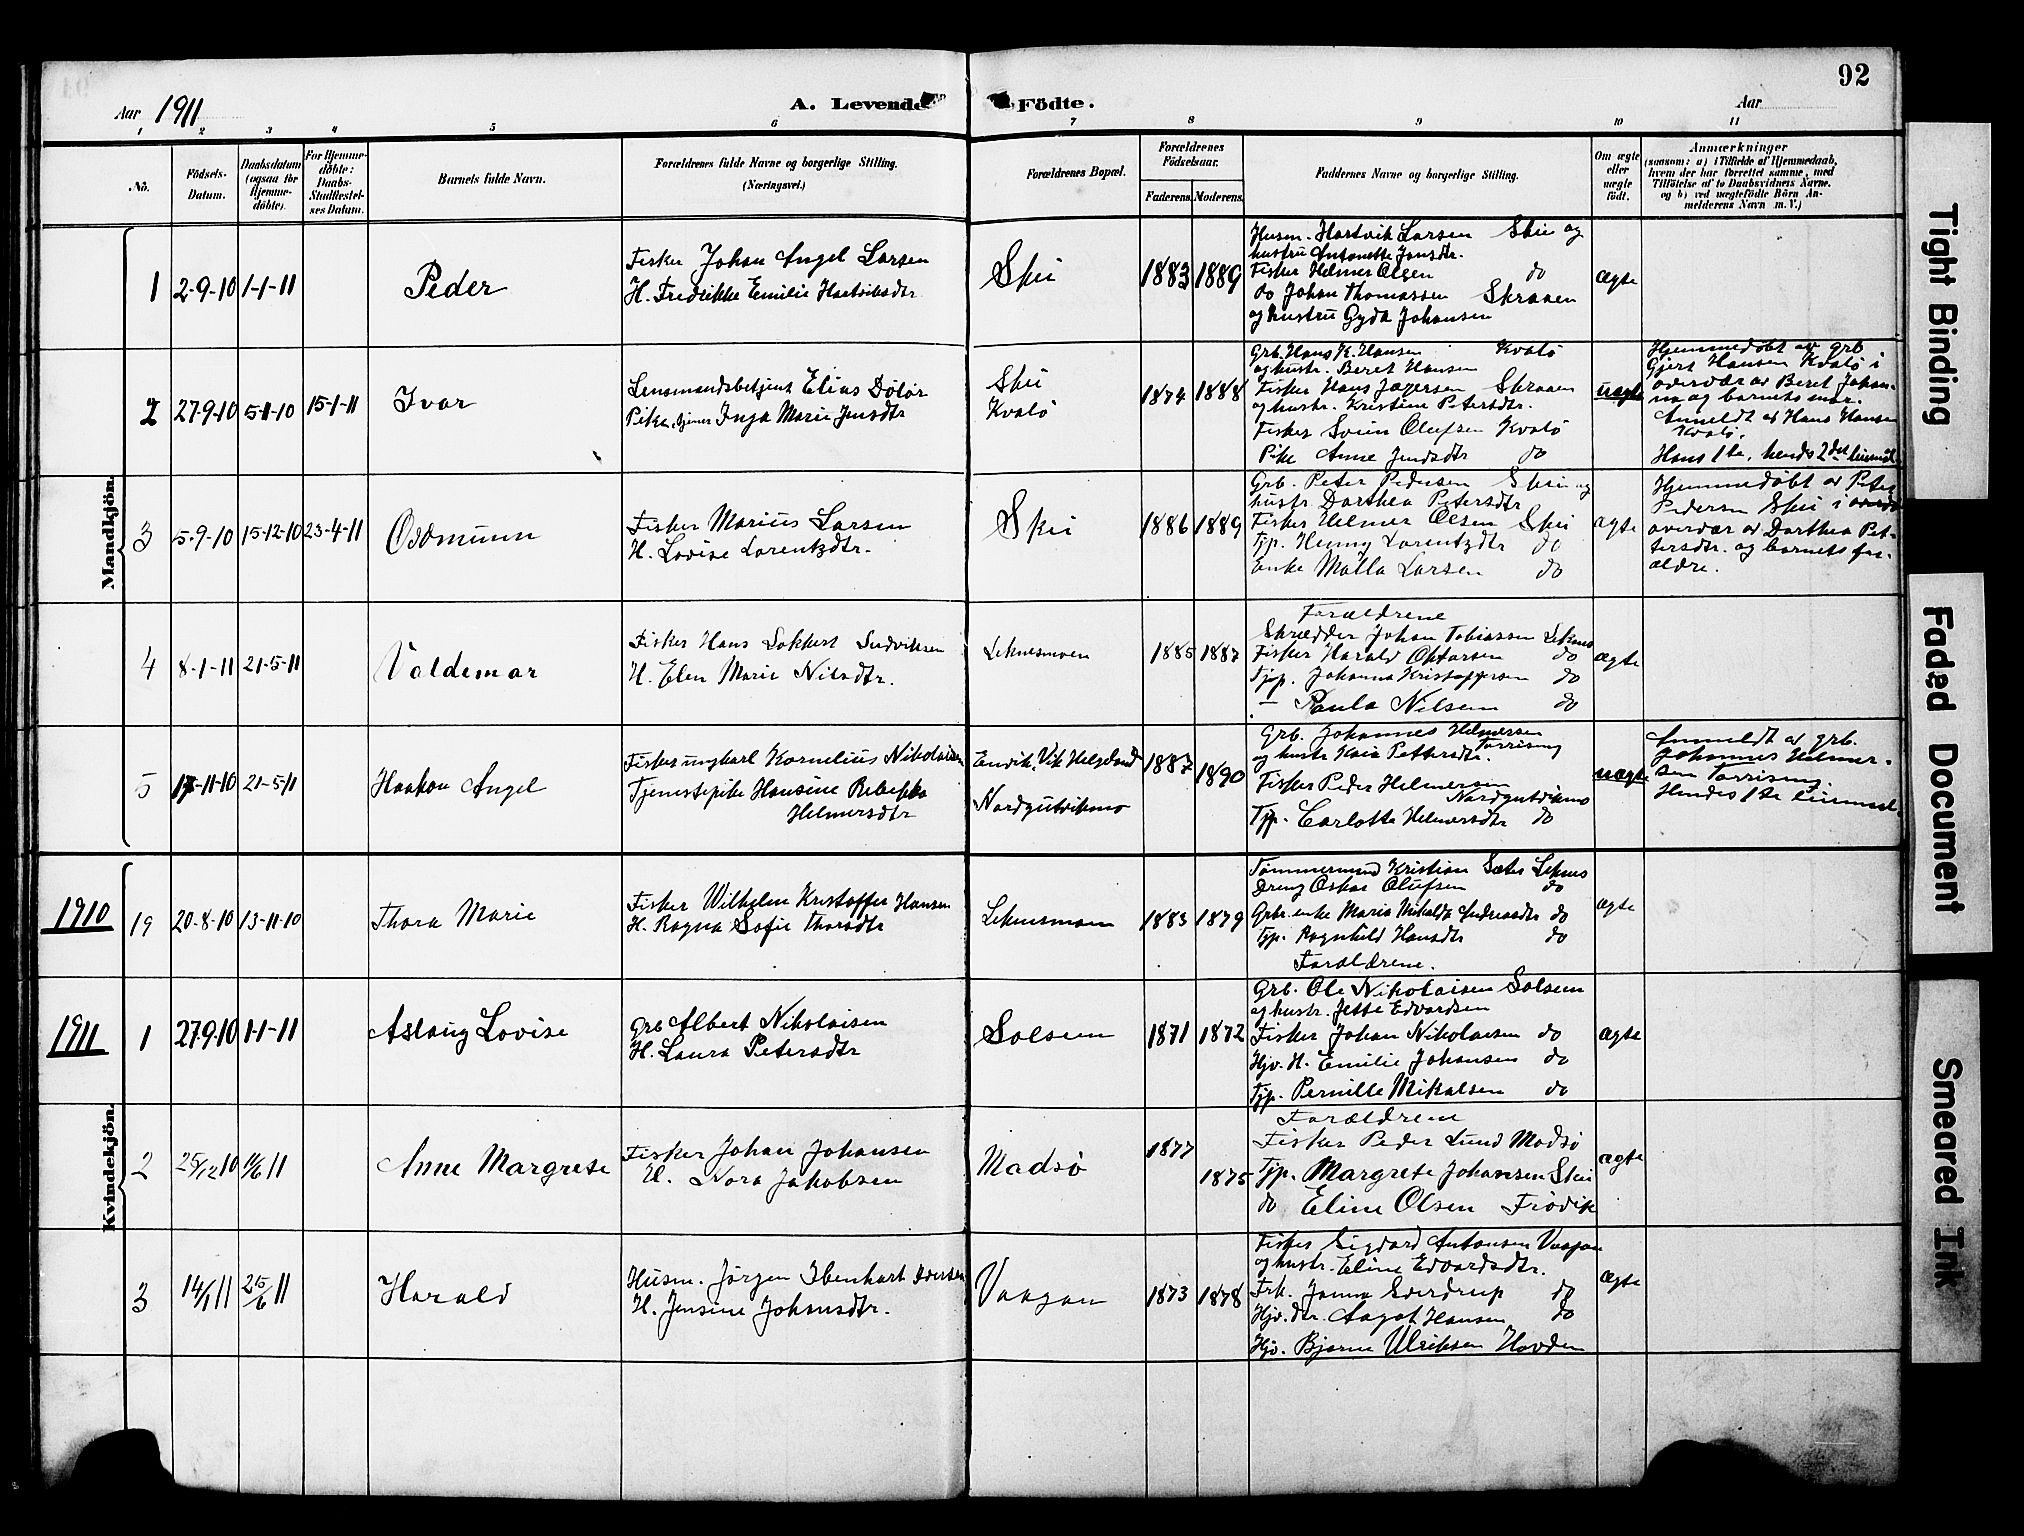 92
Aar 1911
A. Levende
Födte.
Aar
1 2 3 4 5 6 7 8 9 10 11
No.
Födsels-Datum.
Daabsdatum (ogsaa for Hjemme-döbte).
For Hjemme-döbte: Daabs-Stadfæstel-ses Datum.
Barnets fulde Navn.
Forældrenes fulde Navne og borgerlige Stilling. (Næringsvei.)
Forældrenes Bopæl.
Forældrenes Födselsaar.
Faderens
Moderens.
Faddernes Navne og borgerlige Stilling.
Om ægte eller uægte födt.
Anmærkninger
(saasom: a) i Tilfælde af Hjemmedaab, hvem der har forrettet samme, med Tilföielse af to Daabsvidners Navne. og b) ved uægtefödte Börn An-melderens Navn m. V.)
Mandkjön.
1 2-9-10 1-1-11 Peder
Fisker Johan Angel Larsen
H. Fredrikke Emilie Hartviksdtr
Skei 1883 1889
Husm. Hartvik Larsen Skei og
hustru Antonette Jonsdtr.
Fisker Helmer Olsen do
do Johan Thomassen Skraaen
og hustru Gyda Johansen
ægte
2 27-9-10 5-11-10 15-1-11 Ivar
Lensmandsbetjent Elias Dölör
Pike, tjener Inga Marie Jensdtr
Skei
Kvalö
1874 1888
Grb. Hans K. Hansen Kvalö
og hustr. Beret Hansen
Fisker Hans Jægersen Skraaen
og hustr. Kristine Petersdtr.
Fisker Svein Olufsen Kvalö
Pike Anne Jensdtr do
uægte
Hjemmedöbt av grb
Gjert Hansen Kvalö i
overvær av Beret Johan-
na og barnets mor.
Anmeldt av Hans Hansen
Kvalö.
Hans 1te, hendes 2det leiermaal
3 5-9-10 15-12-10 23-4-11 Osdmunn
Fisker Marius Larsen
H. Lovise Lorentzdtr.
Skei 1886 1889
Grb. Peter Pedersen Skei og
hustr. Dorthea Petersdtr
Fisker Helmer Olsen Skei
Tjp. Henny Lorentzdtr do
Enke Malla Larsen do
ægte
Hjemmedöbt av Peter
Pedersen Skei i
overvær av Dorthea Pet-
tersdtr. og barnets for-
ældre.
4 8-1-11 21-5-11 Valdemar
Fisker Hans Lokkert Ludviksen
H. Elen Marie Nilsdtr.
Leknesmoen 1885 1887
Forældrene
Skrædder Johan Tobiassen Leknes
Fisker Harald Oktarsen do
Tjp. Johanna Kristoffersen do
— Paula Nilsen do
ægte
5 17-11-10 21-5-11 Haakon Angel
Fisker ungkarl Kornelius Nikolaisen
Tjenestepike Hansine Rebekka
Helmersdtr
Eidvik, Vik Helgeland
Nordgutvikmo
1887 1890
Grb. Johannes Helmersen
og hustr Kaia Pettersdtr. Torrising
Fisker Peder Helmersen
Nordgutvikmo
Tjp. Carlotte Helmersdtr do
uægte
Anmeldt av grb.
Johannes Helmer-
sen Torrising.
Hendes 1te leiermaal.
Kvindekjön.
1910
19 20-8-10 13-11-10 Thora Marie
Fisker Wilhelm Kristoffer Hansen
H. Ragna Sofie Thorsdtr
Leknesmoen 1883 1879
Tömmermand Kristian Sæter Leknes
Dreng Oskar Olufsen do
Grbr. enke Maria Mikalda Andreasdtr do
Tjp. Ragnhild Hansdtr do
Forældrene.
ægte
1911
1 27-9-10 1-1-11 Aslaug Lovise
Grb Albert Nikolaisen
H. Laura Petersdtr
Solsem 1871 1872
Grb. Ole Nikolaisen Solsem
og hustr. Jette Edvardsen
Fisker Johan Nikolaisen do
Hjv. H. Emilie Johansen do
Tjp. Pernille Mikalsen do
ægte
2 25/12 10 11/6 11 Anne Margrete
Fisker Johan Johansen
H. Nora Jakobsen
Madsö 1877 1875
Forældrene
Fisker Peder Lund Madsö
Tjp. Margrete Johansen Skei
do Eline Olsen Frövik
ægte
3 14/1 11 25/6 11 Harald
Husm. Jörgen Ibenhart Iversen
H. Jensine Johansdtr.
Vaagan 1873 1878
Fisker Sigvard Antonsen Vaagan
og hustr. Eline Edvardsdtr.
Frk. Janna Sverdrup do
Hjv. dtr. Aagot Hansen do
Hjv. Bjarne Ulriksen Hovden
ægte
Tight Binding
Faded Document
Smeared Ink